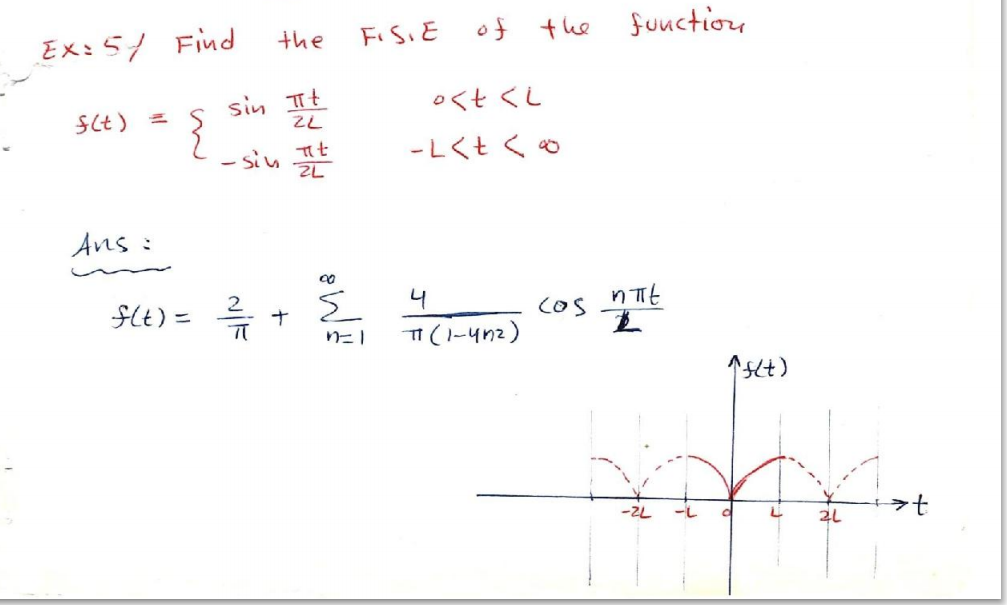 Ex: 5/ Find the F.S.E of the function
f(t) = { sin πt/2L 0<t<L
-sin πt/2L -L<t<∞
Ans:
f(t) = 2/π + ∞Σn=1 4/π(1-4n2) cos nπt/L
f(t)
-2L -L 0 L 2L t